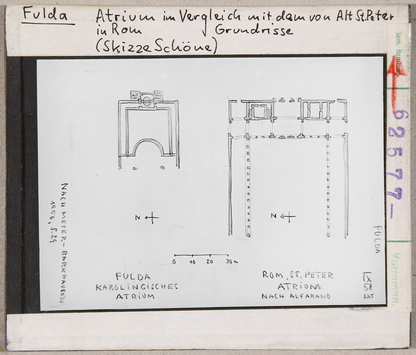 Fulda
Atrium im Vergleich mit dem von Alt St. Peter
in Rom Grundrisse
(Skizze Schöne)
62577
N
N
0 10 20 30 m
FULDA
KAROLINGISCHES
ATRIUM
ROM, ST. PETER
ATRIUM
NACH ALFARANO
IX
58
FULDA
NACH MEYER-BARKHAUSEN